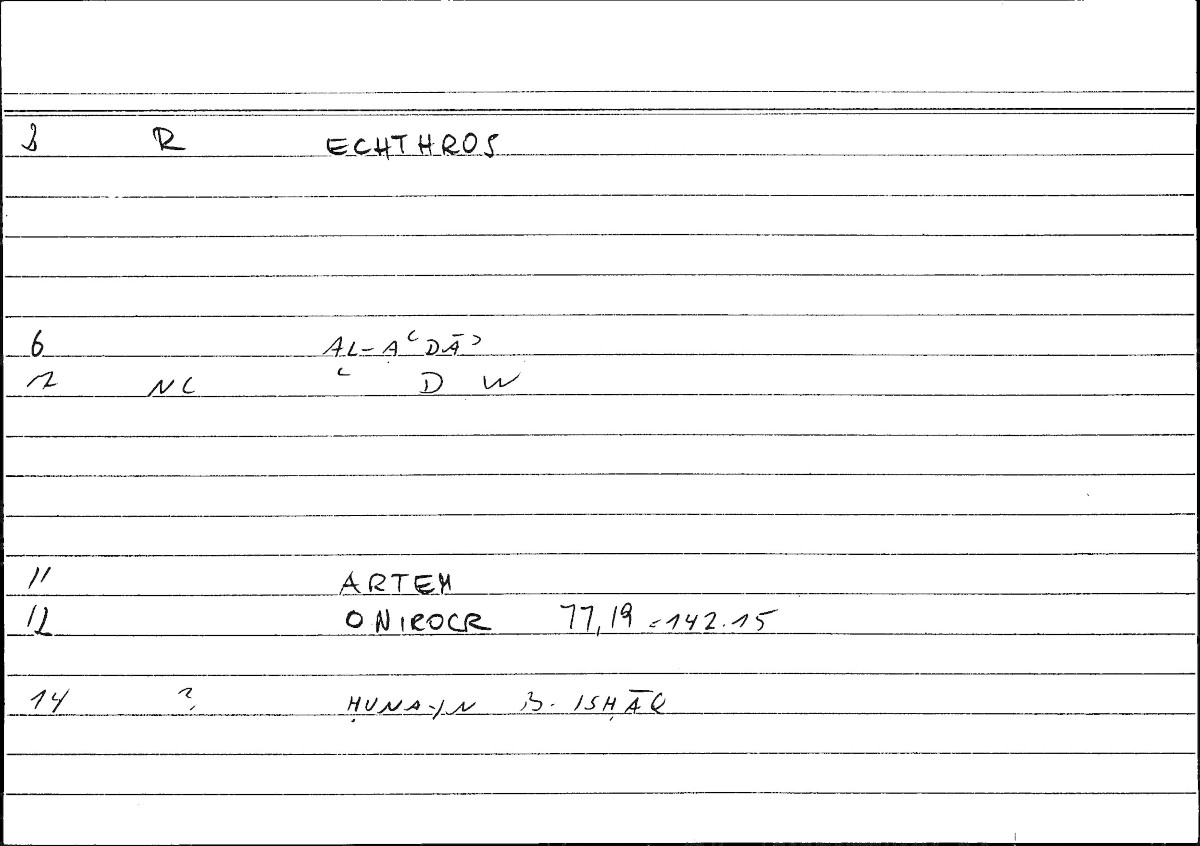 R ECHTHROS
6 AL-AʿDĀʾ
NC ʿ D W
11 ARTEM
12 ONIROCR 77,19 = 142.15
14 ? ḤUNAYN B. ISḤĀQ